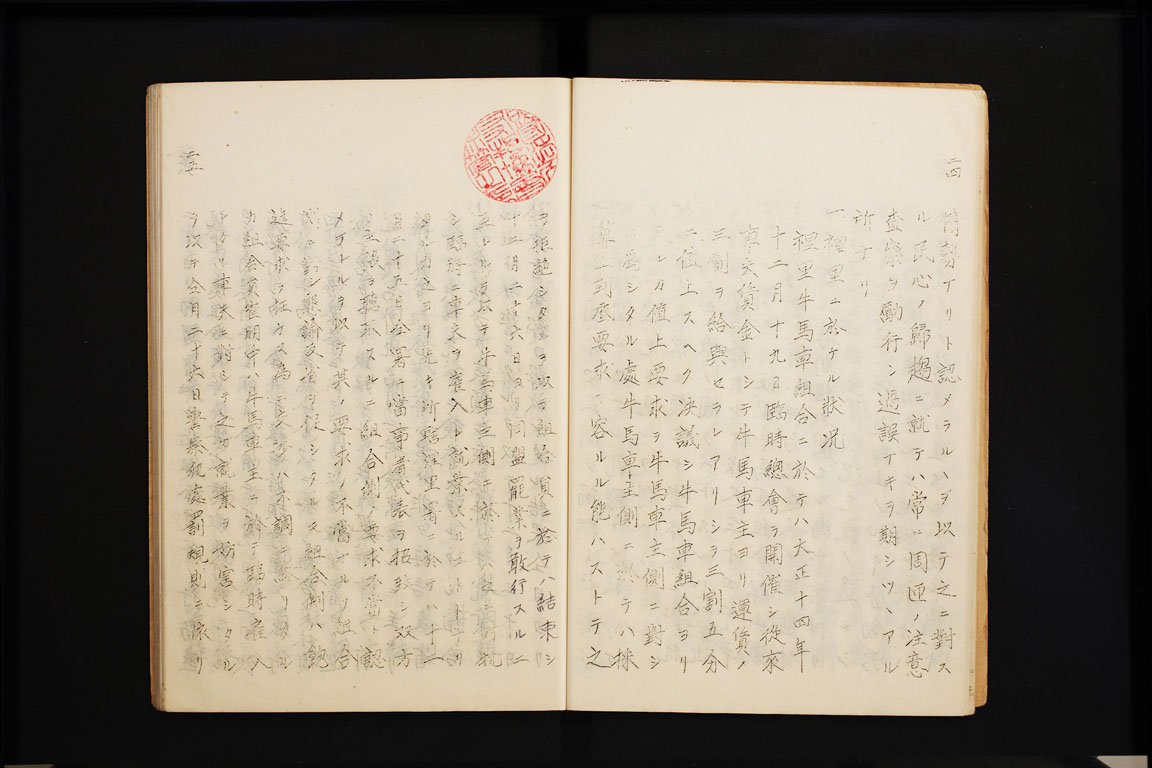 二四
情勢ナリト認メラルヽヲ以テ之ニ對ス
ル民心ノ歸趨ニ就テハ常ニ周匝ノ注意
査察ヲ勵行シ過誤ナキヲ期シツヽアル
所ナリ
一裡里ニ於ケル狀况
裡里牛馬車組合ニ於テハ大正十四年
十二月十九日臨時總會ヲ開催シ從來
車夫賃金トシテ牛馬車主ヨリ運賃ノ
三割ヲ給與セラレアリシヲ三割五分
ニ値上スヘク決議シ牛馬車組合ヨリ
之レカ値上要求ヲ牛馬車主側ニ對シ
為シタル處牛馬車主側ニ於テハ採
算上到底要求ヲ容ルル能ハストテ之
二五
ヲ拒絶シタルヲ以テ組合員ニ於テハ結束シ
十二月二十六日ヨリ同盟罷業ヲ敢行スルニ
至レル
シ臨時ニ車夫ヲ雇入レ就業
所轄裡里署ニ於テハ十二
月二十五日仝署ニ當事者代表ヲ招致シ双方
ノ主張ヲ聽取スルニ組合側ノ要求不當ト認
メラレルヲ以テ其ノ要求ノ不當ナルヲ組合
側ニ對シ懇諭反省ヲ促シタルモ組合側ハ飽
迄要求ヲ枉ケス為ニ不調
カ組合員崔明中ハ牛馬車主ニ於テ臨時雇入
車夫ニ對シテ之カ就業ヲ妨害シタル
ヲ以テ仝月二十六日警察犯處罰規則ニ依リ